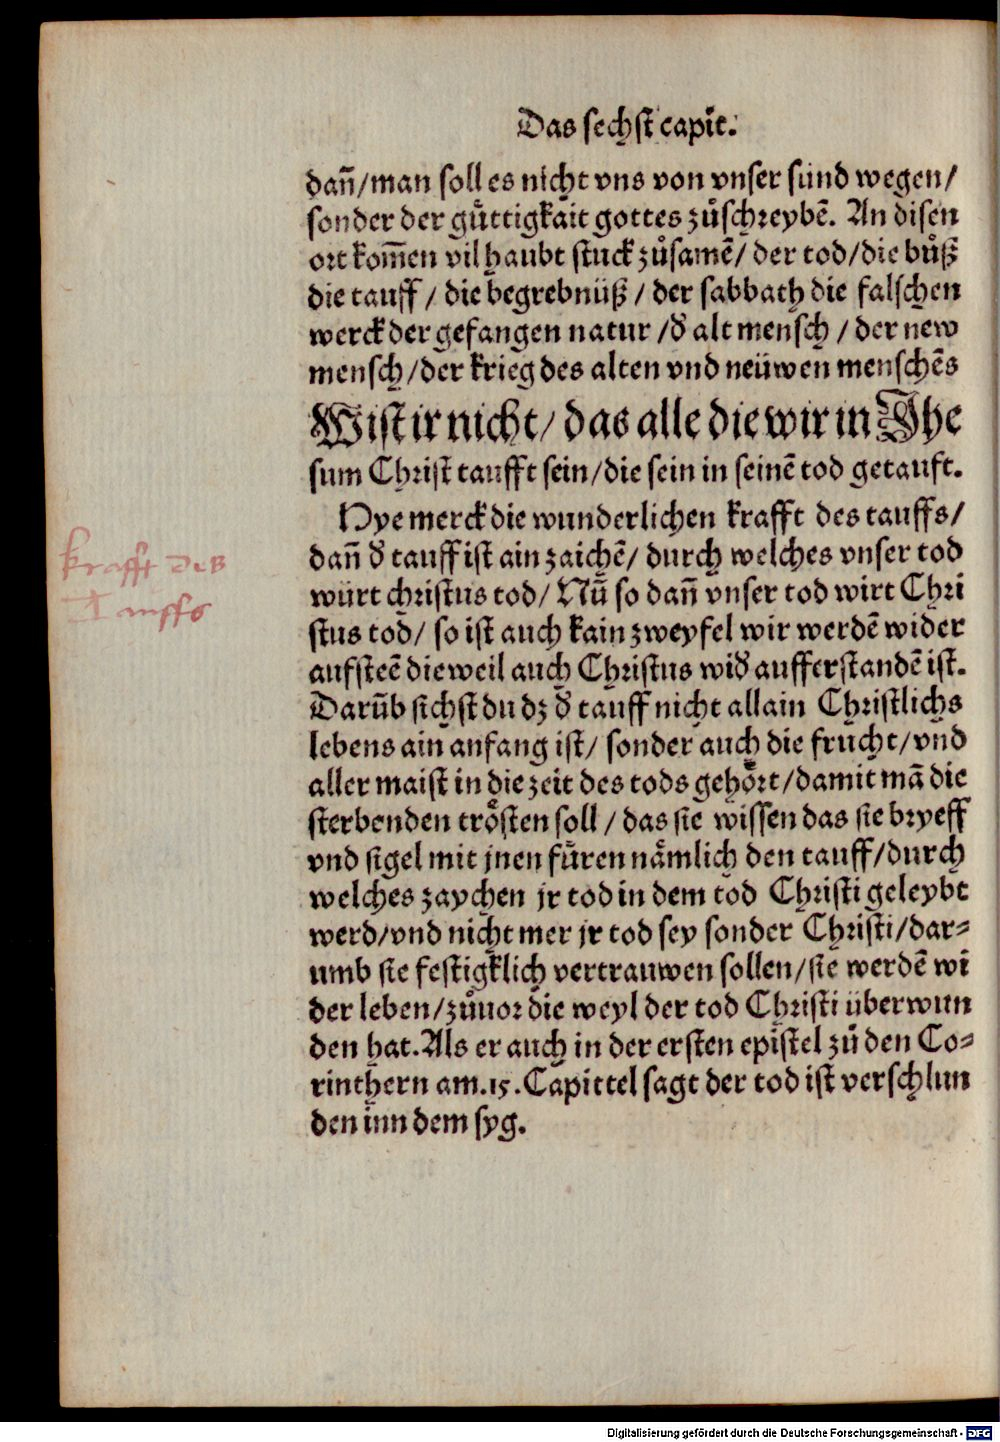 Das sechst capit.
dañ/man soll es nicht vns von vnser sünd wegen/
sonder der gůttigkait gottes zůschreybẽ. An disen
ort kom̃en vil haubt stuck zůsamẽ/ der tod/die bůß
die tauff / die begrebnüß / der sabbath die falschen
werck der gefangen natur /đ alt mensch / der new
mensch/der krieg des alten vnd neüwen menschẽs
Wist ir nicht/ das alle die wir in Jhe
sum Christ taufft sein/die sein in seinẽ tod getauft.
Hye merck die wunderlichen krafft des tauffs/
dañ đ tauff ist ain zaichẽ/ durch welches vnser tod
würt christus tod/ Nũ so dañ vnser tod wirt Chri
stus tod/ so ist auch kain zweyfel wir werdẽ wider
aufsteẽ die weil auch Christus widͤ aufferstandẽ ist.
Darũb sichst du dz đ tauff nicht allain Christlichs
lebens ain anfang ist/ sonder auch die frucht/vnd
aller maist in die zeit des tods gehoͤrt/damit mã die
sterbenden troͤsten soll / das sie wissen das sie bryeff
vnd sigel mit jnen fůren naͤmlich den tauff/durch
welches zaychen jr tod in dem tod Christi geleybt
werd/vnd nicht mer jr tod sey sonder Christi/dar⸗
umb sie festigklich vertrauwen sollen/sie werdẽ wi
der leben/zůuor die weyl der tod Christi überwun
den hat. Als er auch in der ersten epistel zů den Co⸗
rinthern am.15.Capittel sagt der tod ist verschlun
den inn dem syg.
krafft des
Tauffs
Digitalisierung gefördert durch die Deutsche Forschungsgemeinschaft - DFG